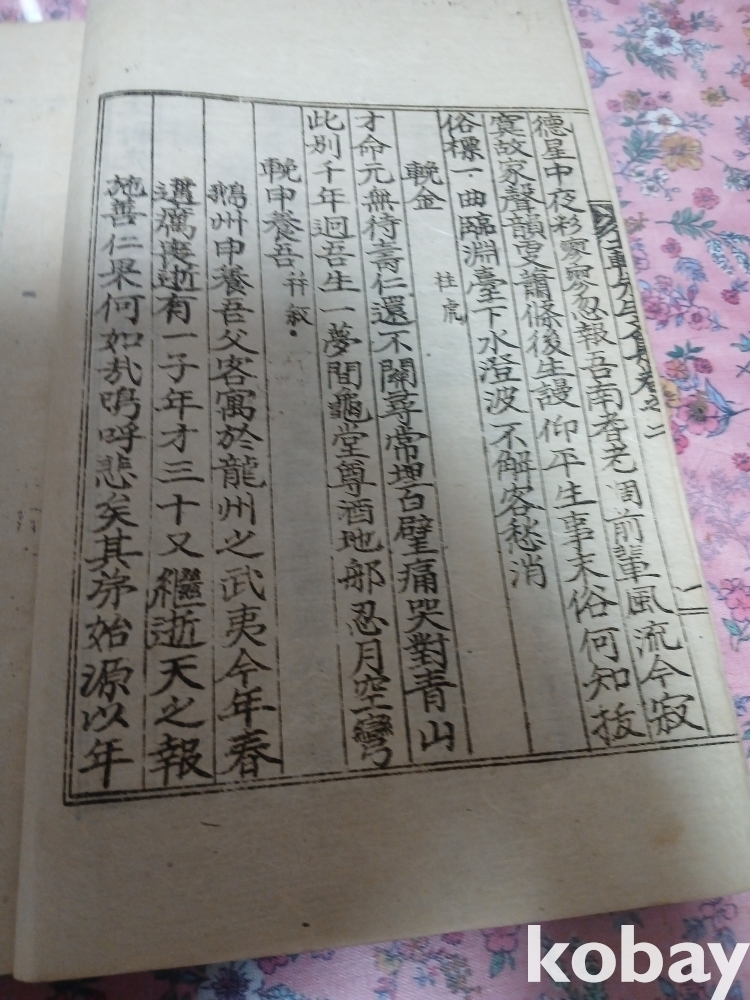 德星中夜彩寥寥忍報吾南耆老凋前輩風流今寂
寞故家聲韻更蕭條後生謾仰平生事末俗何知拔
俗標一曲臨淵臺下水澄波不解客愁消
輓金柱虎
才命元無待壽仁還不關尋常埋白璧痛哭對青山
此別千年迥吾生一夢間龜堂尊酒地那忍月空彎
輓申養吾幷叙
鵝州申養吾父客寓於龍州之武夷今年春
遘癘喪逝有一子年才三十又繼逝天之報
施善仁果何如哉嗚呼悲矣其弟始源以年
軒先生文集卷之二
一
kobay